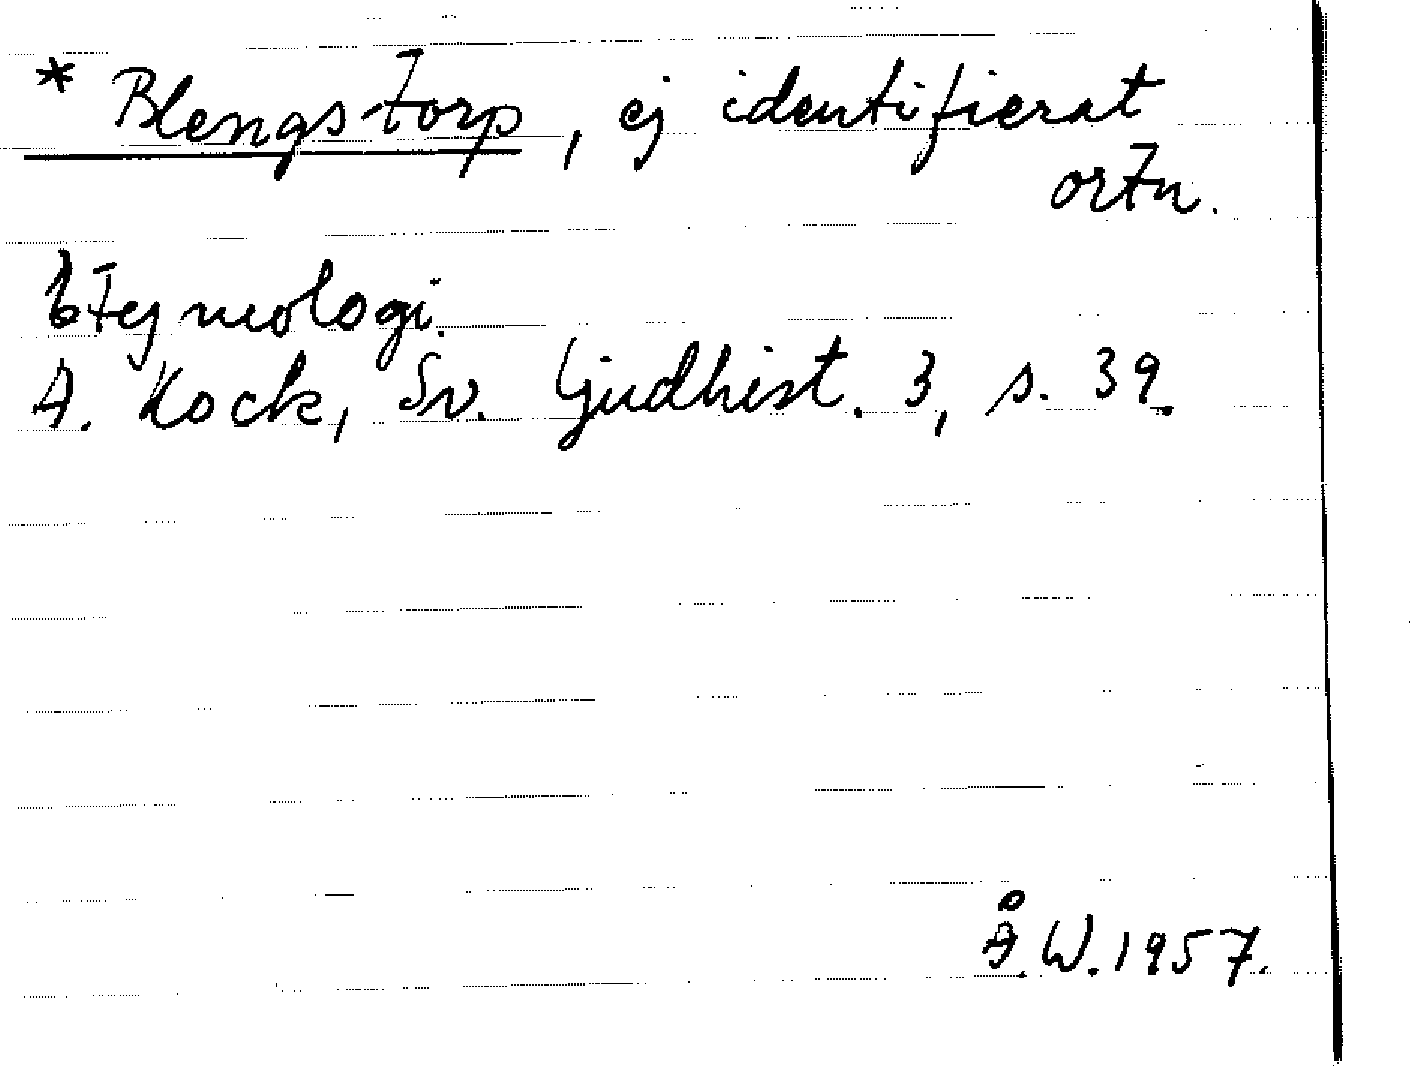 * Blengstorp, ej identifierat
ortn.
Etymologi.
A. Kock, Sv. ljudhist. 3, s. 39.
Å.W. 1957.